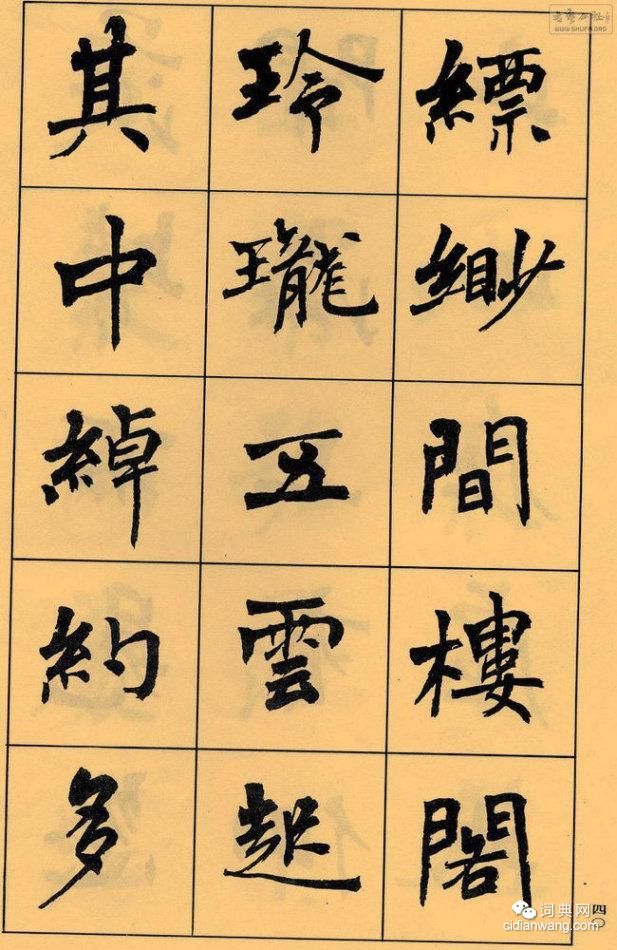 縹緲間樓閣
玲瓏五雲起
其中綽約多
四〇
WWW.SHUFA.ORG
词典网
cidianwang.com